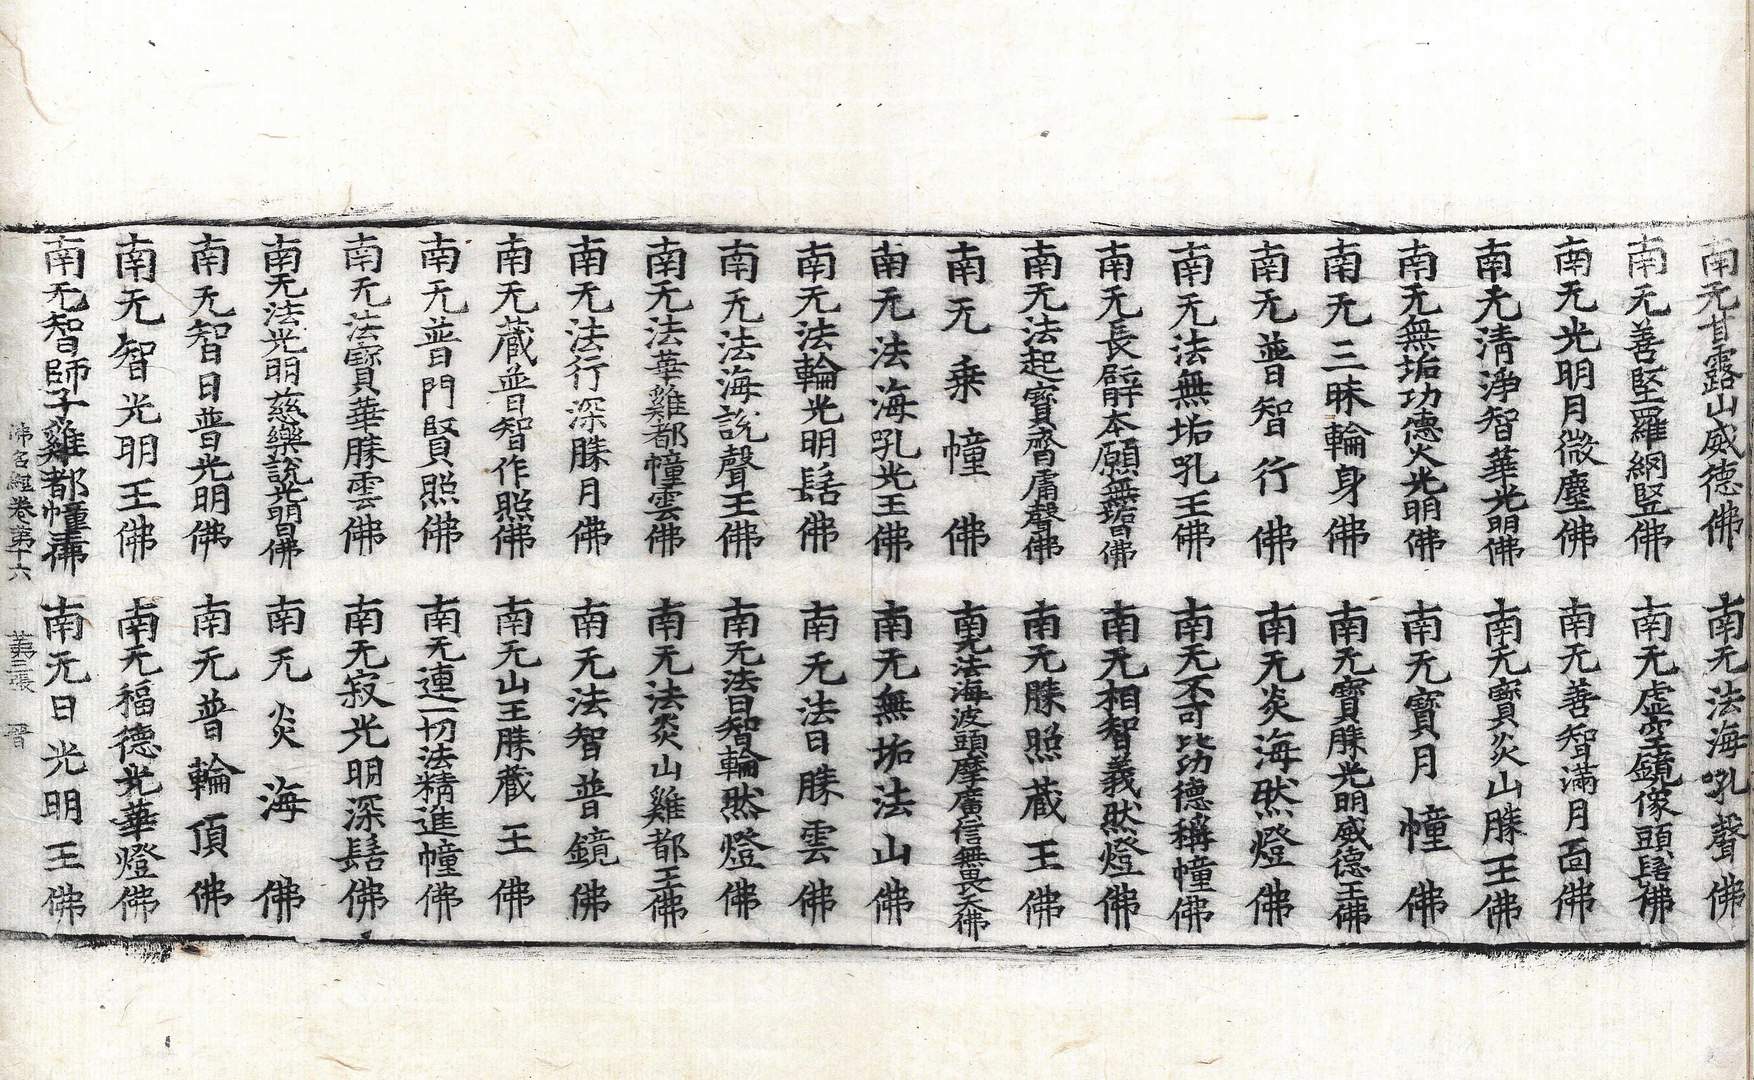 南无甘露山威德佛 南无法海吼聲佛
南无善堅羅網堅佛 南无虛空鏡像頭髻佛
南无光明月微塵佛 南无善智滿月面佛
南无清淨智華光明佛 南无寶炎山勝王佛
南无無垢功德火光明佛 南无寶月幢佛
南无三昧輪身佛 南无寶勝光明威德王佛
南无普智行佛 南无炎海然燈佛
南无法無垢吼王佛 南无不可比功德稱幢佛
南无長臂本願無垢日佛 南无相智義然燈佛
南无法起寶齊庸聲佛 南无勝照藏王佛
南无乘幢佛 南无法海波頭摩廣信無畏天佛
南无法海吼光王佛 南无無垢法山佛
南无法輪光明髻佛 南无法日勝雲佛
南无法海說聲王佛 南无法日智輪然燈佛
南无法華雞都幢雲佛 南无法炎山雞都王佛
南无法行深勝月佛 南无法智普鏡佛
南无藏普智作照佛 南无山王勝藏王佛
南无普門賢照佛 南无連一切法精進幢佛
南无法寶華勝雲佛 南无寂光明深髻佛
南无法光明慈樂說光明日佛 南无炎海佛
南无智日普光明佛 南无普輪頂佛
南无智光明王佛 南无福德光華燈佛
南无智師子雞都幢王佛 南无日光明王佛
佛名經卷第十六 第三張 晉